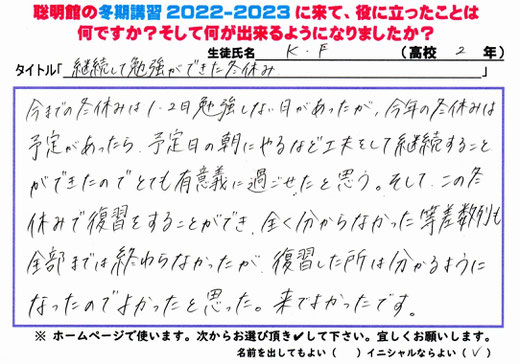 聡明館の冬期講習2022-2023に来て、役に立ったことは
何ですか？そして何が出来るようになりましたか？
生徒氏名 K.F （高校 2 年）
タイトル「継続して勉強ができた冬休み」
今までの冬休みは1・2日勉強しない日があったが、今年の冬休みは
予定があったら、予定日の朝にやるなど工夫をして継続すること
ができたのでとても有意義に過ごせたと思う。そして、この冬
休みで復習をすることができ、全く分からなかった等差数列も
全部までは終わらなかったが、復習した所は分かるように
なったのでよかったと思った。来てよかったです。
※ ホームページで使います。次からお選び頂き✔して下さい。宜しくお願いします。
名前を出してもよい（ ）イニシャルならよい（✓）